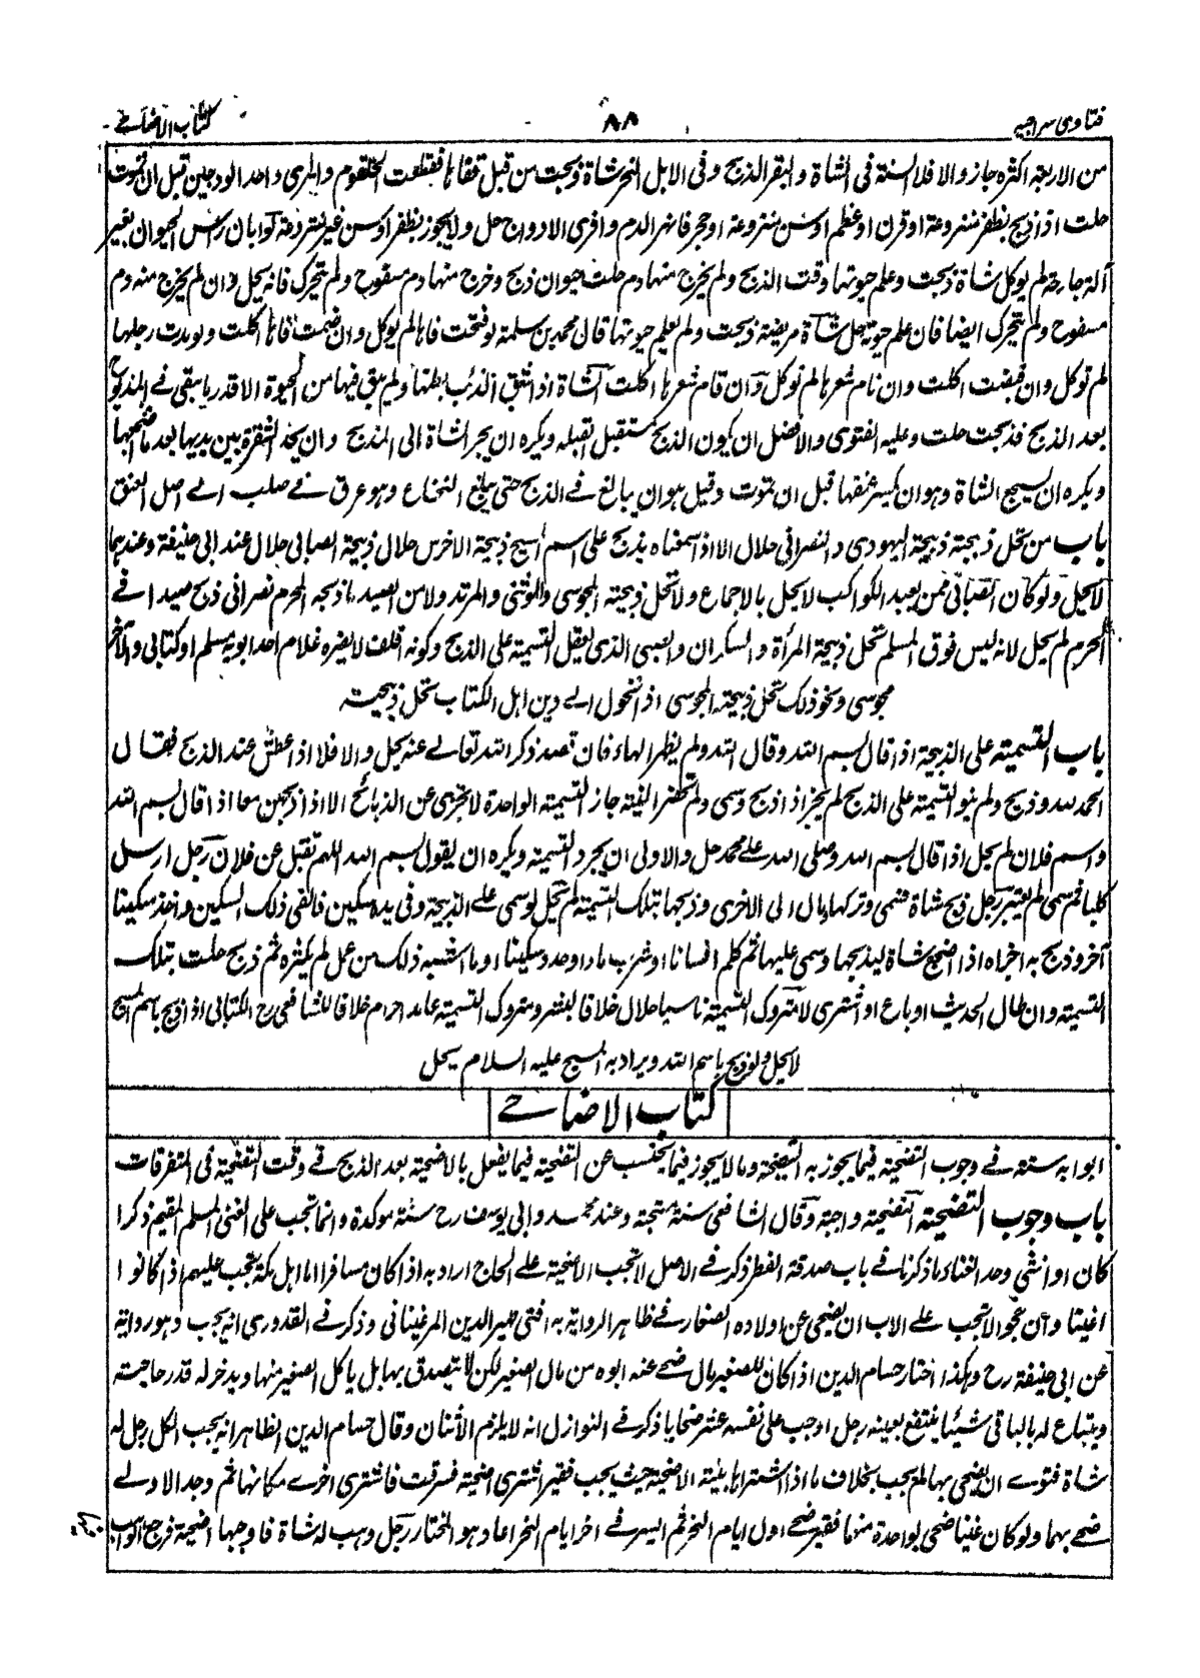 فتاوى سراجيه ٨٨ كتاب الاضاحے
من الاربعة اكثره جاز والا فلا السنة فى الشاة والبقر الذبح وفى الابل النحر شاة ذبحت من قبل قفاها فقطعت الحلقوم والمرى واحد الودجين قبل ان تموت
حلت اذا ذبح بظفر منزوعة او قرن او عظم او سن منزوعة او حجر فانهر الدم وافرى الاوداج حل ولا يجوز بظفر او سن غير منزوعة لو ابان راس الحيوان بغير
آلة جارحة لم يوكل شاة ذبحت وعلم حيوتها وقت الذبح ولم يخرج منها دم حلت حيوان ذبح وخرج منها دم مسفوح ولم يتحرك فانه يحل وان لم يخرج منه دم
مسفوح ولم يتحرك ايضا فان علم حيوته حل شاة مريضة ذبحت ولم يعلم حيوتها قال محمد بن سلمة لو فتحت فاها لم يوكل وان ضمت فاها اكلت ولو مدت رجلها
لم توكل وان قبضت اكلت وان نام شعرها لم توكل وان قام شعرها اكلت الشاة اذا شق الذئب بطنها ولم يبق فيها من الحيوة الا قدر ما يبقى فے المذبوح
بعد الذبح فذبحت حلت وعليه الفتوى والافضل ان يكون الذبح مستقبل القبلة ويكره ان يجر الشاة الى المذبح وان يحد الشفرة بين يديها بعد ما اضجعها
ويكره ان ينخع الشاة وهو ان يكسر عنقها قبل ان تموت وقيل هو ان يبالغ فے الذبح حتى يبلغ النخاع وهو عرق فے صلب الے اصل العنق
باب من تحل ذبيحته ذبيحة اليهودى والنصرانى حلال الا اذا سمعناه يذبح على اسم المسيح ذبيحة الاخرس حلال ذبيحة الصابى حلال عند ابى حنيفة وعندهما
لا يحل ولو كان الصابى ممن يعبد الكواكب لا يحل بالاجماع ولا تحل ذبيحة المجوسى والوثنى والمرتد ولا من الصيد ما ذبحه المحرم نصرانى ذبح صيدا فے
الحرم لم يحل لانه ليس فوق المسلم تحل ذبيحة المرأة والسكران والصبى الذى يعقل التسمية على الذبح وكونه اقلف لا يضره غلام احد ابويه مسلم او كتابى والآخر
مجوسى ونحو ذلك تحل ذبيحته المجوسى اذا تحول الے دين اهل الكتاب تحل ذبيحته
باب التسمية على الذبيحة اذا قال بسم الله وقال الله ولم يظهر الهاء فان قصد ذكر الله تعالے عنه يحل والا فلا اذا عطس عند الذبح فقال
الحمد لله وذبح ولم ينو التسمية على الذبح لم يجز اذا ذبح وسمى ولم تحضر النية جاز التسمية الواحدة لا تجزى عن الذبائح الا اذا ذبحهن معا اذا قال بسم الله
واسم فلان لم يحل اذا قال بسم الله وصلى الله علے محمد حل والاولى ان يجرد التسمية ويكره ان يقول بسم الله اللهم تقبل عن فلان رجل ارسل
كلبا ثم سمى لم يعتبر رجل ذبح شاة فسمى وتركها ومال الى الاخرى وذبحها بتلك التسمية لم تحل لو سمى علے الذبيحة وفى يده سكين فالقى ذلك السكين واخذ سكينا
آخر وذبح به اجزاه اذا اضجع شاة ليذبحها وسمى عليها ثم كلم انسانا او شرب ماء او حدد سكينا او ما اشبه ذلك من عمل لم يكثره ثم ذبح حلت بتلك
التسمية وان طال الحديث او باع او اشترى لا متروك التسمية ناسيا حلال خلافا لبشر ومتروك التسمية عامدا حرام خلافا للشافعى رح الكتابى اذا ذبح باسم المسيح
لا يحل ولو ذبح باسم الله ويراد به المسيح عليه السلام يحل
كتاب الاضاحے
ابوابه ستة فے وجوب التضحية فيما يجوز به التضحية وما لا يجوز فيما يحتسب عن التضحية فيما يفعل بالاضحية بعد الذبح فے وقت التضحية فى المتفرقات
باب وجوب التضحية التضحية واجبة وقال الشافعى سنة وعند محمد وابى يوسف رح سنة موكدة وانما تجب على الغنى المسلم المقيم ذكرا
كان او انثى وحد الغناء ما ذكرنا فے باب صدقة الفطر ذكر فے الاصل لا تجب الاضحية علے الحاج اراد به اذا كان مسافرا اما اهل مكة يجب عليهم اذا كانوا
اغنيا وان حجوا لا تجب علے الاب ان يضحى عن اولاده الصغار فے ظاهر الرواية به افتى ظهير الدين المرغينانى وذكر فے القدورى انه يجب وهو رواية
عن ابى حنيفة رح وكذا اختار حسام الدين اذا كان للصغير مال ضحے عنه ابوه من مال الصغير لكن لا يتصدق بها بل ياكل الصغير منها ويدخر له قدر حاجته
ويبتاع له بالباقى شيئا ينتفع بعينه رجل اوجب على نفسه عشر ضحايا ذكر فے النوازل انه لا يلزم الا ثنان وقال حسام الدين الظاهر انه يجب الكل رجل له
شاة فنوے ان يضحى بها لم يجب بخلاف ما اذا اشتراها بنية الاضحية حيث يجب فقير اشترى اضحية فسرقت فاشترى اخرے مكانها ثم وجد الاولے
ضحے بهما ولو كان غنيا ضحى بواحدة منهما فقير ضحے اول ايام النحر ثم ايسر فے اخر ايام النحر اعاد هو المختار رجل وهب له شاة فاوجبها اضحية فرجع الواهب